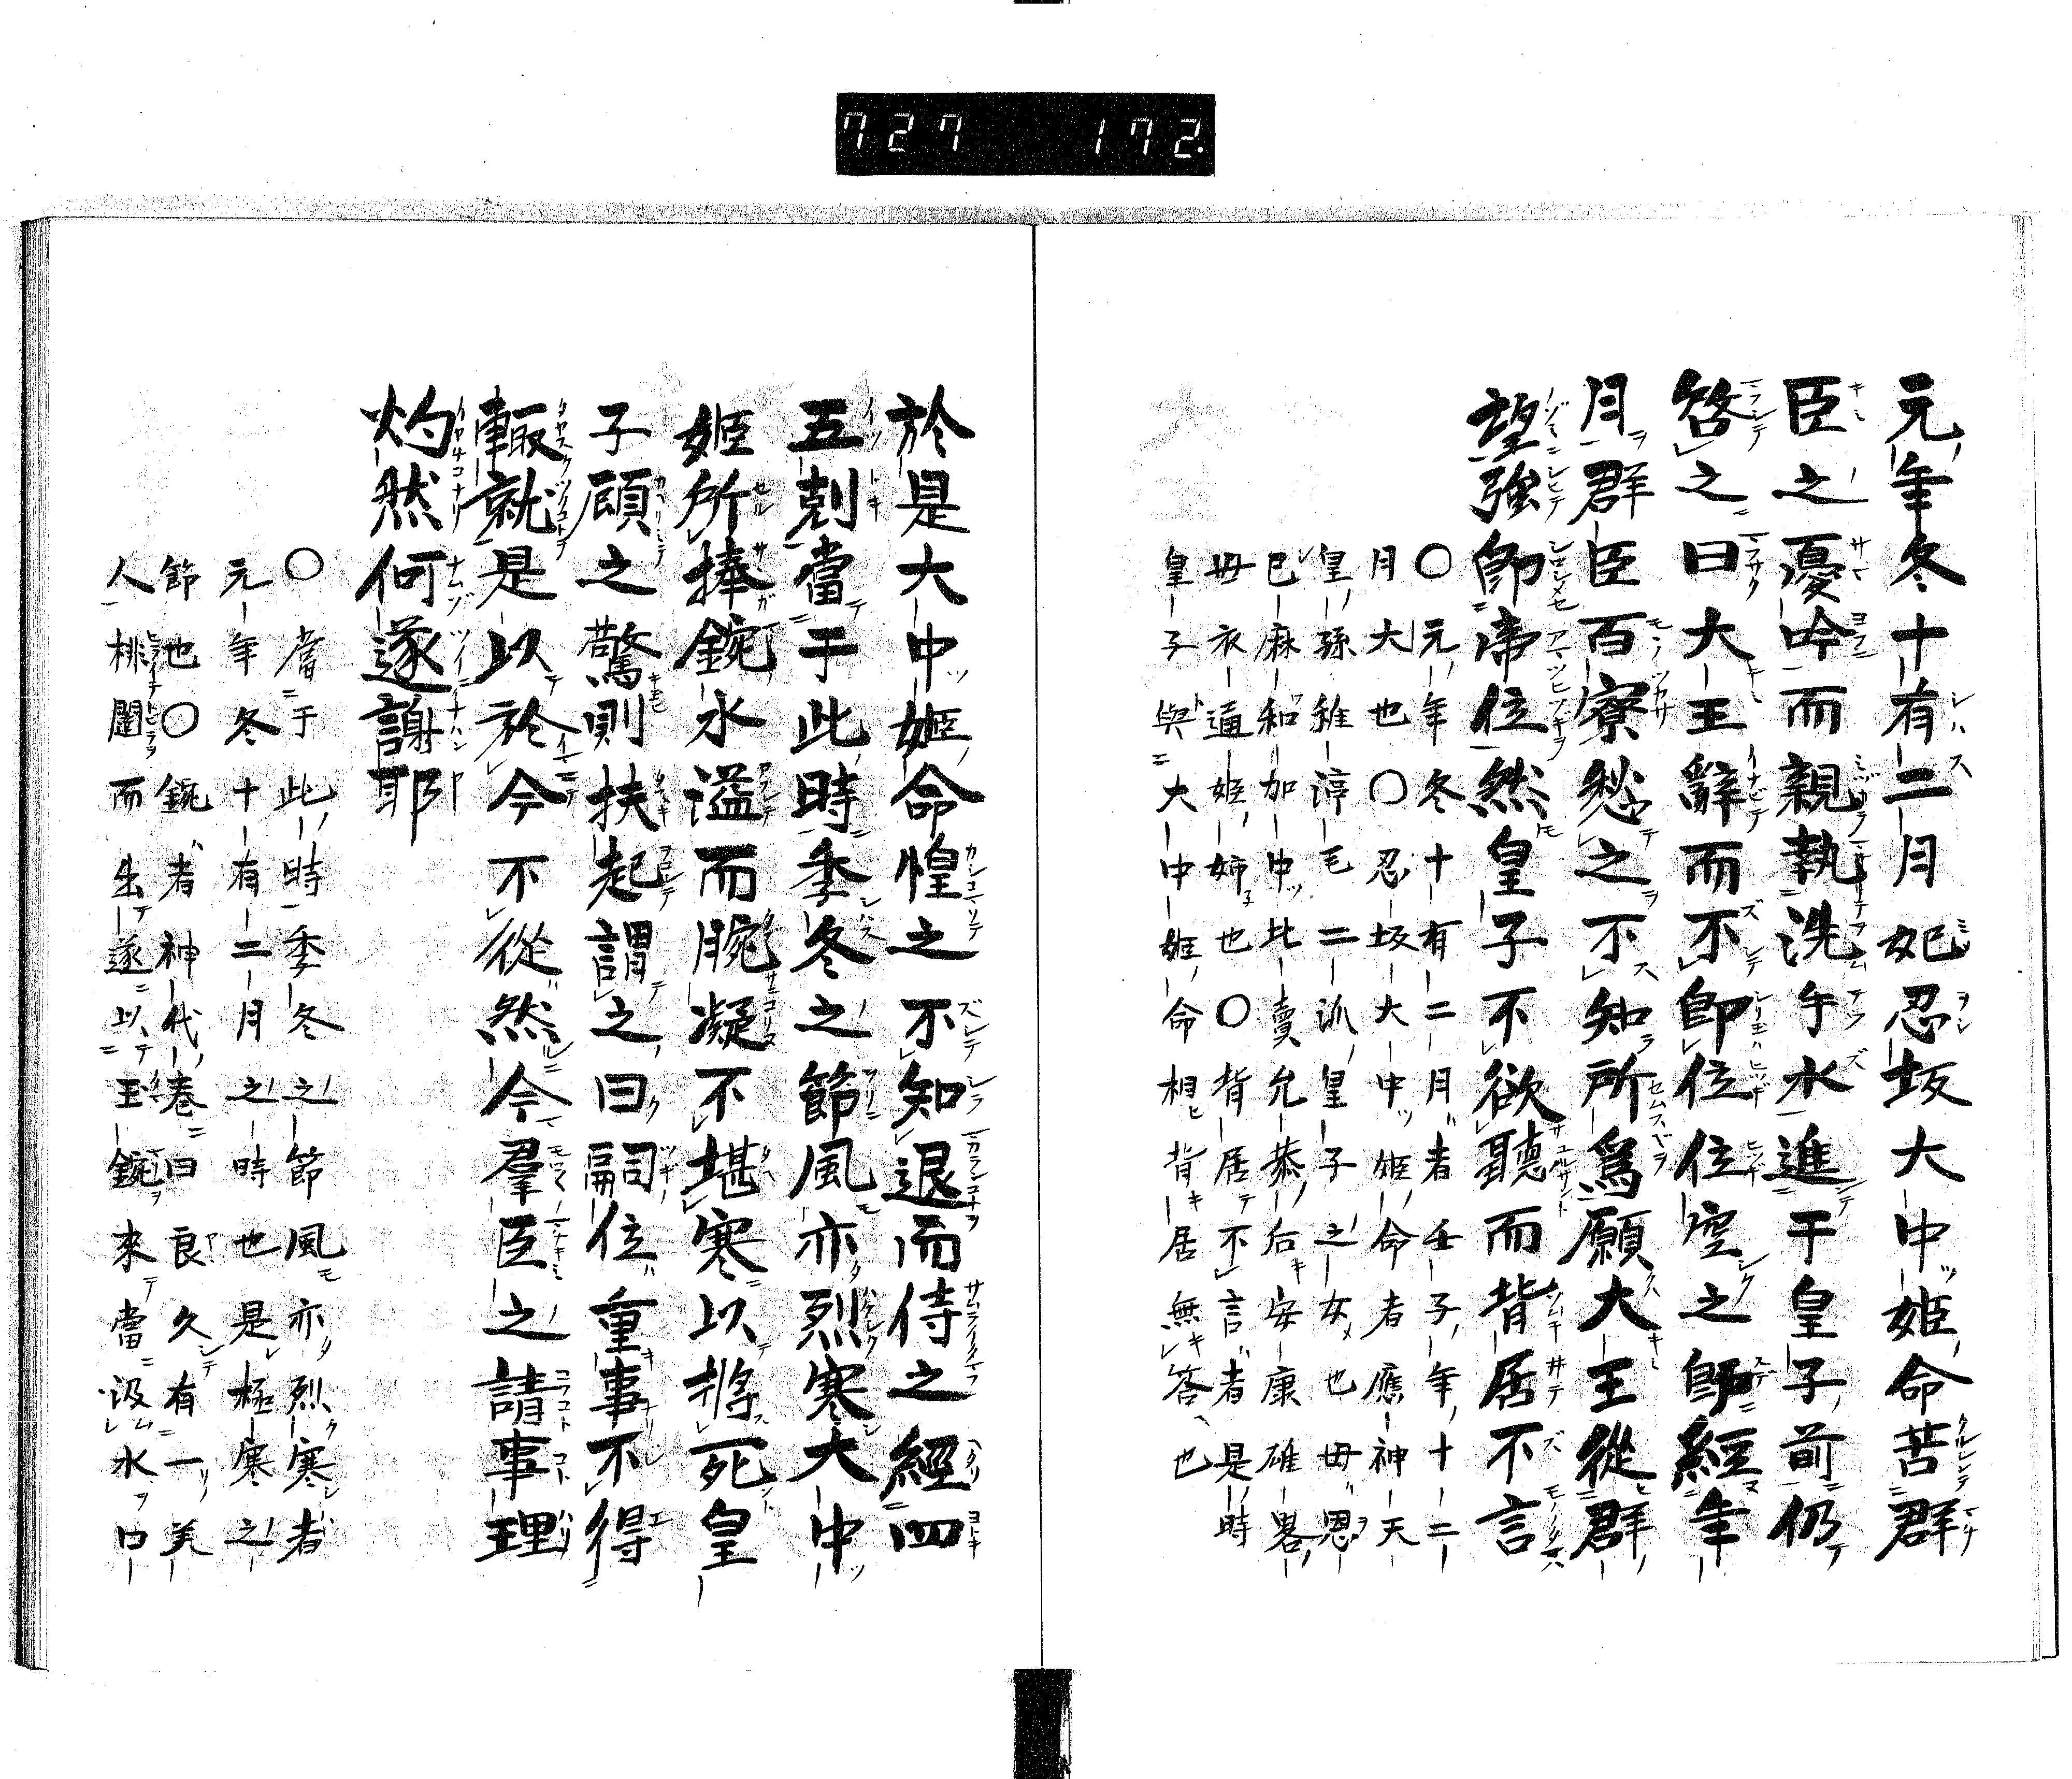 727 172.
元年冬十有二月妃忍坂大中姫命苦群
臣之憂吟而親執洗手水進于皇子前仍
啓之曰大王辭而不即位位空之既經年
月群臣百寮愁之不知所爲願大王從群
望強即帝位然皇子不欲聽而背居不言
〇元年冬十有二月者壬子年十二
月大也〇忍坂大中姫命者應神天
皇孫稚渟毛二派皇子之女也毋恩
已麻和加中比賣允恭后安康雄畧
毋衣通姫姉也〇背居不言者是時
皇子與大中姫命相背居無答也
於是大中姫命惶之不知退而侍之經四
五剋當于此時季冬之節風亦烈寒大中
姫所捧鋺水溢而腕凝不堪寒以將死皇
子顧之驚則扶起謂之曰嗣位重事不得
輙就是以於今不從然今羣臣之請事理
灼然何遂謝耶
〇當于此時季冬之節風亦烈寒者
元年冬十有二月之時也是極寒之
節也〇鋺者神代卷曰良久有一美
人桃闥而出遂以玉鋺來當汲水口